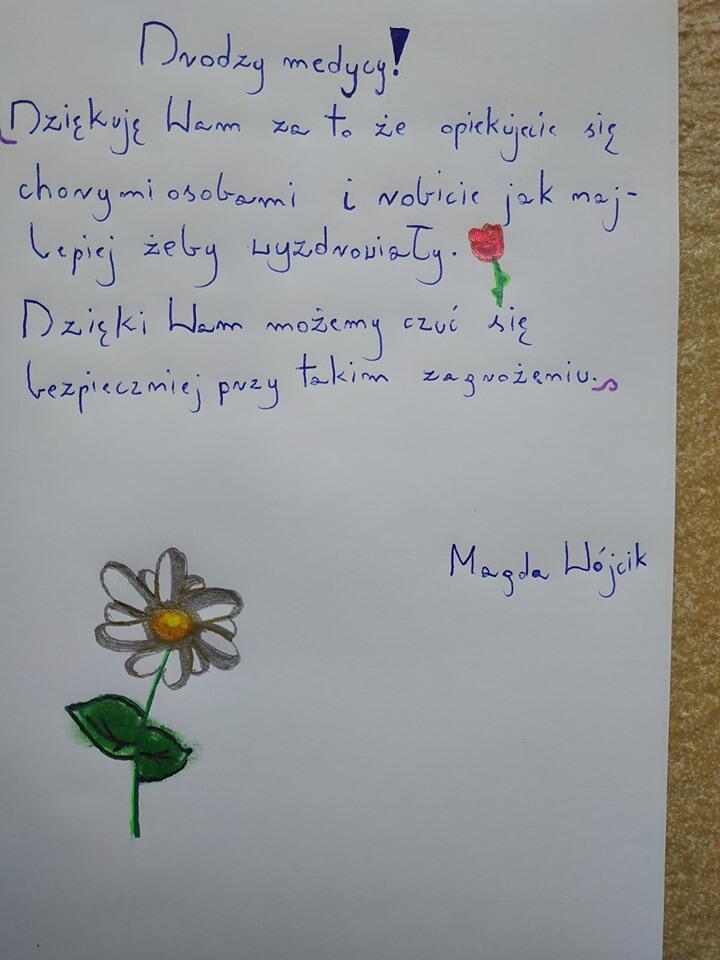 Drodzy medycy!
Dziękuję Wam za to że opiekujecie się
chorymi osobami i robicie jak naj-
lepiej żeby wyzdrowiały.
Dzięki Wam możemy czuć się
bezpieczniej przy takim zagrożeniu.
Magda Wójcik